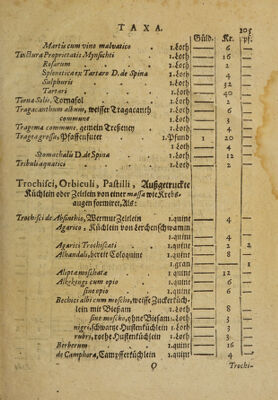 TAXA. 205
Güld. Kr. pf.
Martis cum vino malvatico . 1.Loth — 6 —
Tinctura Proprietatis Mynsichti . 1.Loth — 16 —
Rosarum . 1.Loth — 2 —
Splenetica ex Tartaro D. de Spina . 1.Loth — 4 —
Sulphuris . 1.Loth — 32 —
Tartari . 1.Loth — 40 —
Torna Solis, Tornasol . 1.Loth — 2 —
Tragacanthum album, weisser Tragacanth 1.Loth — 2 —
commune 1.Loth — 3 —
Tragema commune, gemein Tresseney . 1.Loth — 4 —
Tragea grossa, Pfaffenfutter . 1 Pfund 1 20 —
1.Loth — 4 —
Stomachalis D. de Spina . 1.Loth — 12 —
Tribuli aquatici . 1.Loth — 2 —
Trochisci, Orbiculi, Pastilli, Außgetruckte
Küchlein oder Zeltlein von einer massa wie Krebs-
augen formiret, Als:
Trochisci de Absinthio, Wermut Zeltlein 1.quint — 4 —
Agarico, Küchlein von Lerchenschwamm
1.quint — 4 —
Agarici Trochiscati . 1.quint — 2 —
Alhandali, bereit Coloquint . 1.quint — 8 —
1.gran — — 1
Alipta moschata . 1.quint — 12 —
Alkekengi cum opio . 1.quint — 4 —
sine opio . 1.quint — 6 —
Bechici albi cum moscho, weisse Zuckerküch-
lein mit Biesam . 1.Loth — 8 —
sine moscho, ohne Biesam . 1.Loth — 3 —
nigri, schwartze Hustenküchlein 1.Loth — 3 —
rubri, rothe Hustenküchlein 1.Loth — 3 —
Berberum . 1.quint — 16 —
de Camphora, Campfferküchlein . 1.quint — 4 —
Trochi-